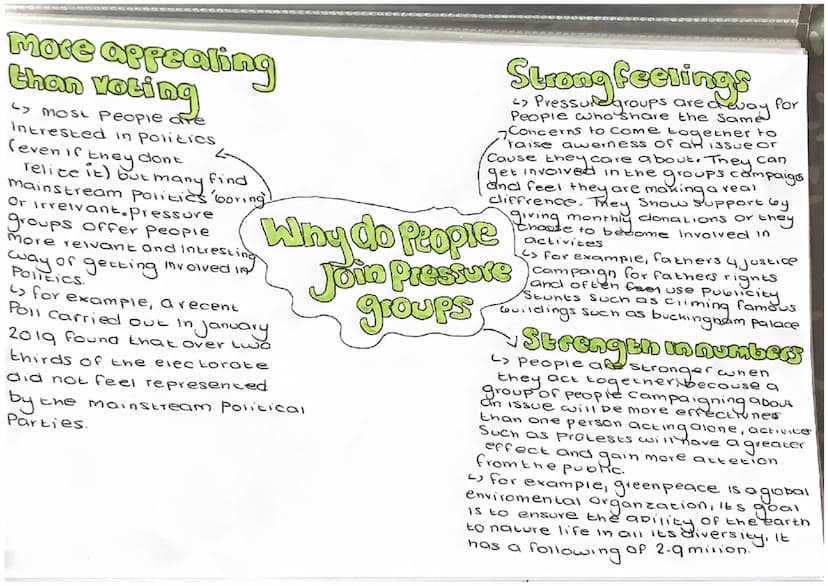 More appealing
than voting
↳ most people are
intrested in politics
(even if they dont
relice it) but many find
mainstream politics 'boring'
or irrelvant. Pressure
groups offer people
more relvant and intresting
way of getting involved in
Politics.
↳ for example, a recent
Poll carried out in January
2019 found that over two
thirds of the electorate
did not feel represented
by the mainstream political
Parties.
Why do People
Join Pressure
groups
Strong feelings
↳ Pressure groups are a way for
People who share the same
Concerns to come together to
raise awerness of an issue or
Cause they care about. They can
get involved in the groups campaigs
and feel they are making a real
diffrence. They show support by
giving monthly donations or they
choose to become involved in
activites
↳ for example, fathers 4 justice
campaign for fathers rights
and often use Publicity
Stunts such as climing famous
buildings such as buckingham palace
Strength in numbers
↳ People are stronger when
they act together, because a
group of people campaigning about
an issue will be more effectivnes
than one person acting alone, activites
Such as Protests will have a greater
effect and gain more attetion
from the public.
↳ for example, greenpeace is a global
enviromental organzation, its goal
is to ensure the ability of the earth
to nature life in all its diversity. It
has a following of 2.9 milion.